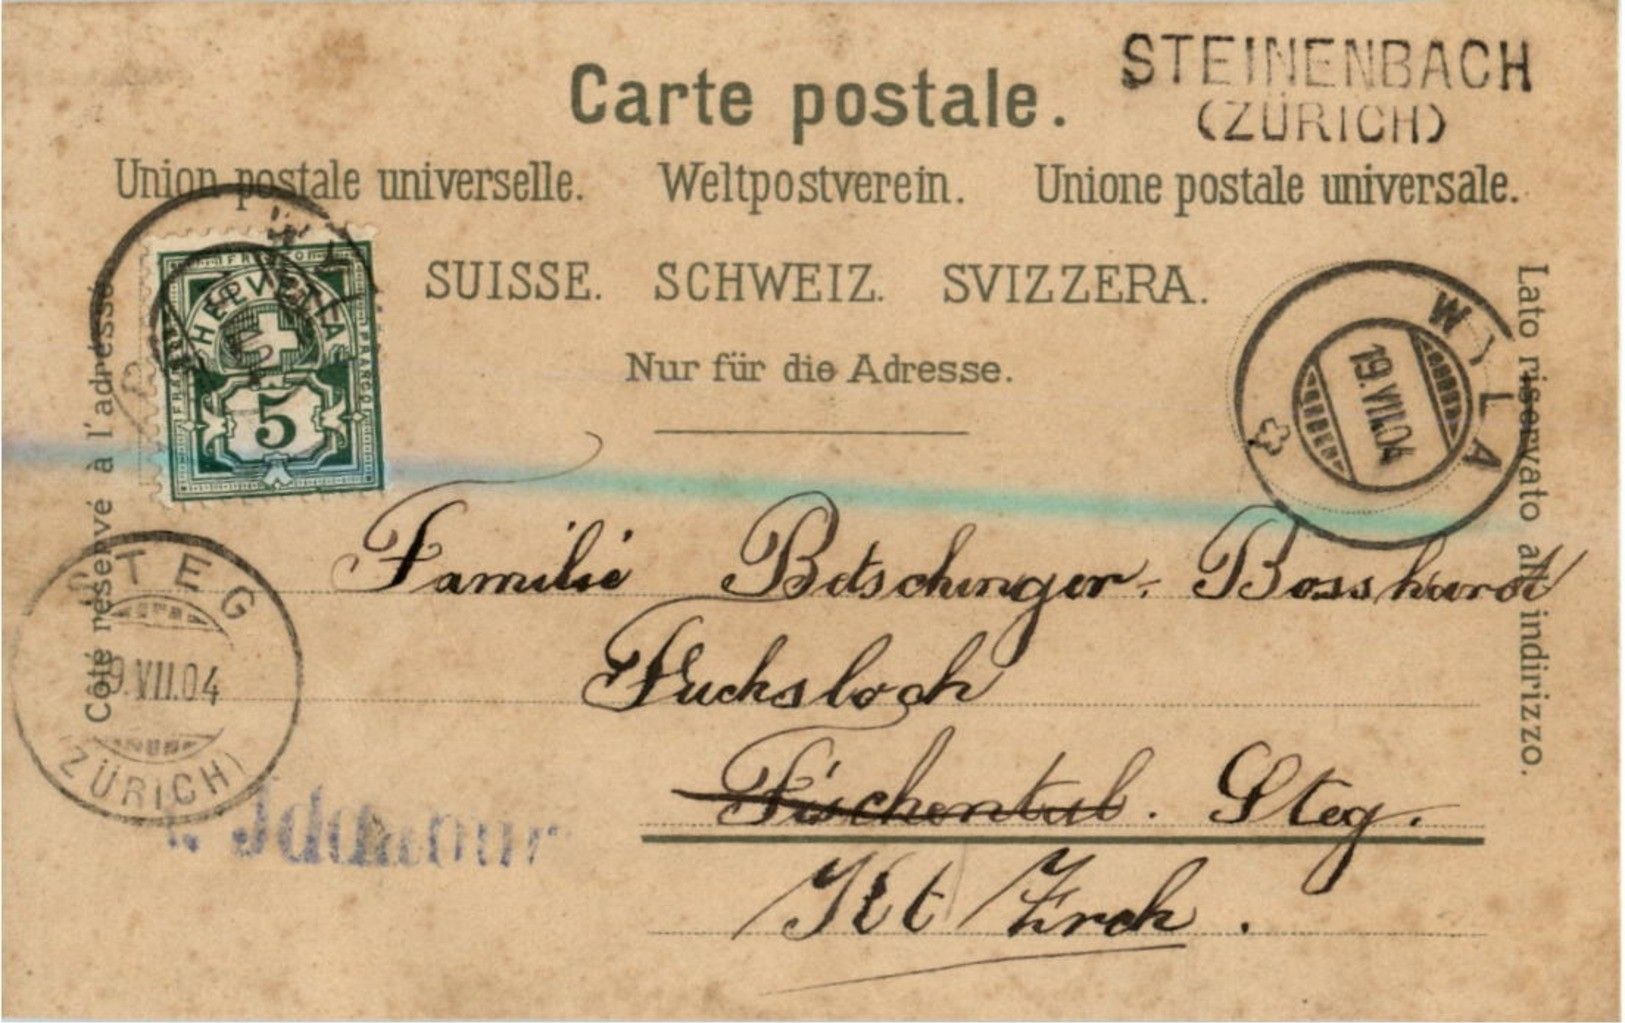 STEINENBACH
(ZÜRICH)
Carte postale.
Union postale universelle. Weltpostverein. Unione postale universale.
SUISSE. SCHWEIZ. SVIZZERA.
Nur für die Adresse.
Côté réservé à l'adresse
Lato riservato all' indirizzo.
FRANCO
HELVETIA
FRANCO
5
WYLA
19.VII.04
STEG
9.VII.04
(ZÜRICH)
Familie Betschinger-Bosshardt
Fuchsloch
Fischental. Steg.
Kt Zrch.